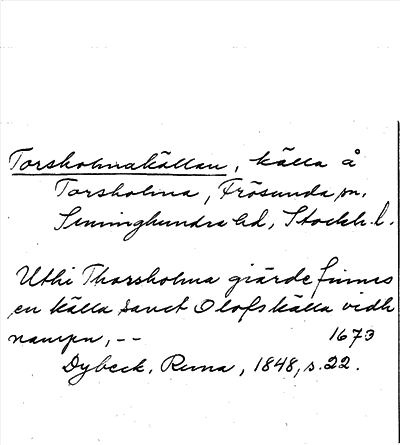 Torsholmakällan, källa å
Torsholma, Frösunda sn.
Seminghundra hd, Stockh. l.
Uthi Thorsholma giärde finnes
en källa Sanct Olofs källa vidh
nampn, --
1673
Dybeck. Runa, 1848, s. 22.